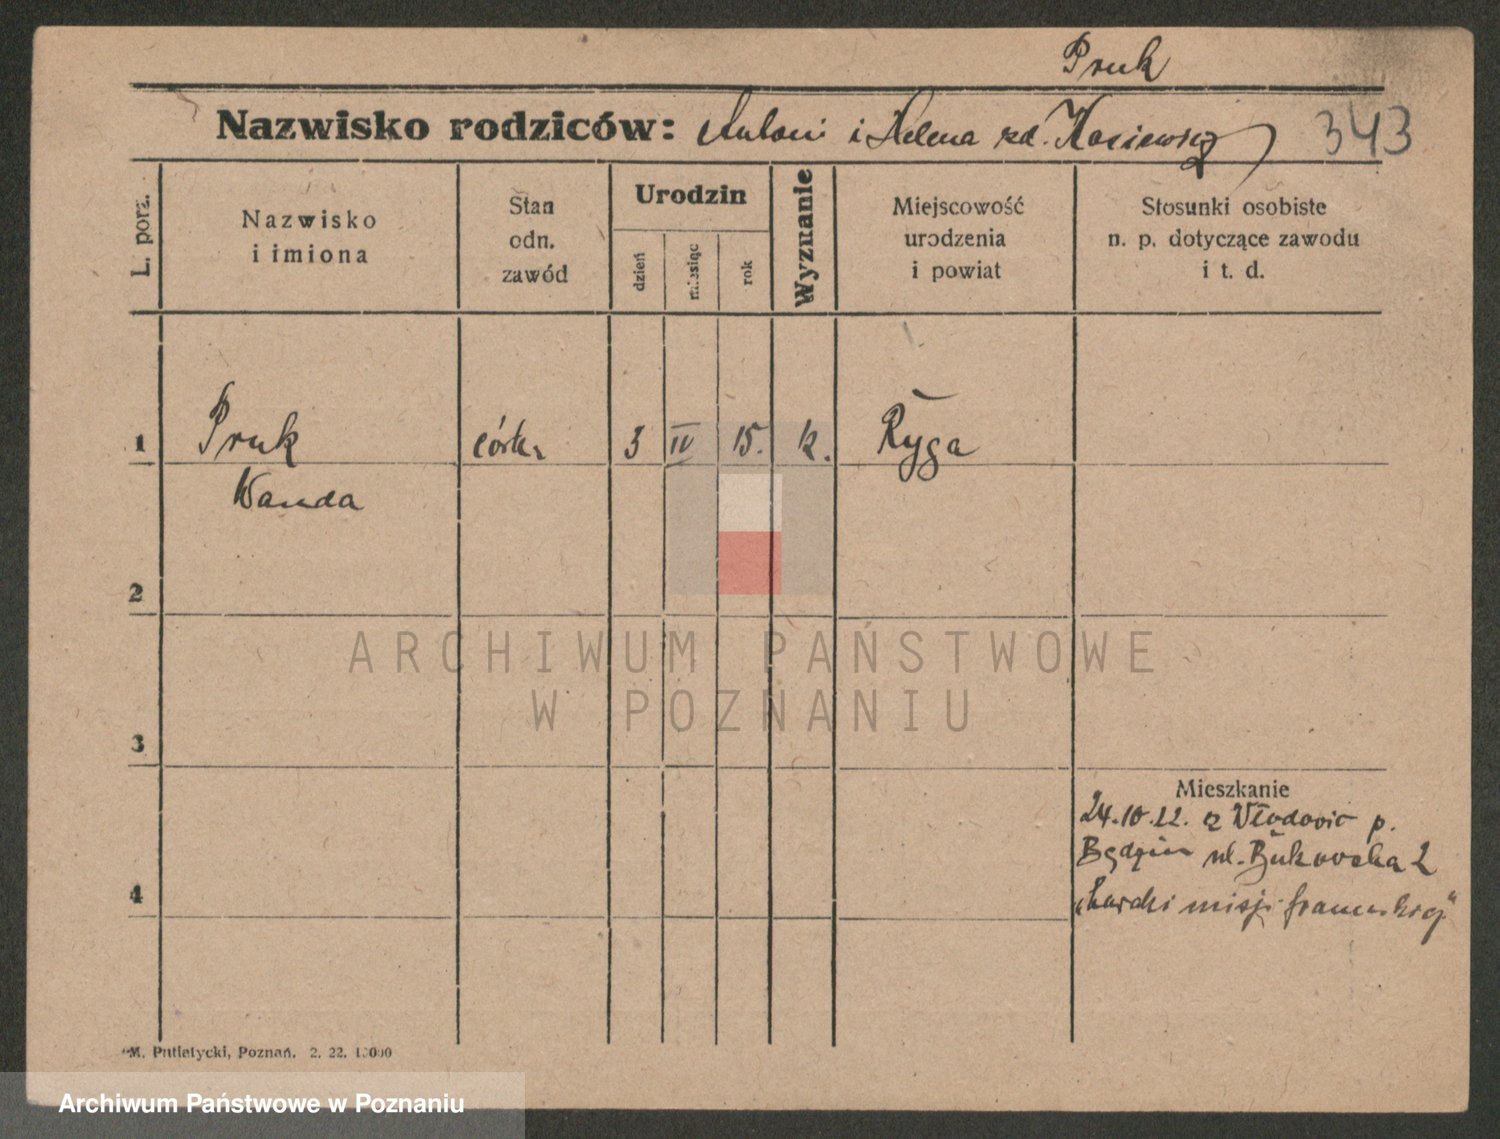 Pruk
Nazwisko rodziców: Antoni i Helena zd.
343
L. porz.
Nazwisko
i imiona
Stan
odn.
zawód
Urodzin
dzień
miesiąc
rok
Wyznanie
Miejscowość
urodzenia
i powiat
Stosunki osobiste
n. p. dotyczące zawodu
i t. d.
1
Pruk
córka
3
IV
15.
k.
Ryga
Wanda
2
ARCHIWUM PAŃSTWOWE
W POZNANIU
3
Mieszkanie
24.10.22. z p.
Będzin ul. Bukowska 2
4
misji
M. Putiatycki, Poznań. 2. 22. 10000
Archiwum Państwowe w Poznaniu